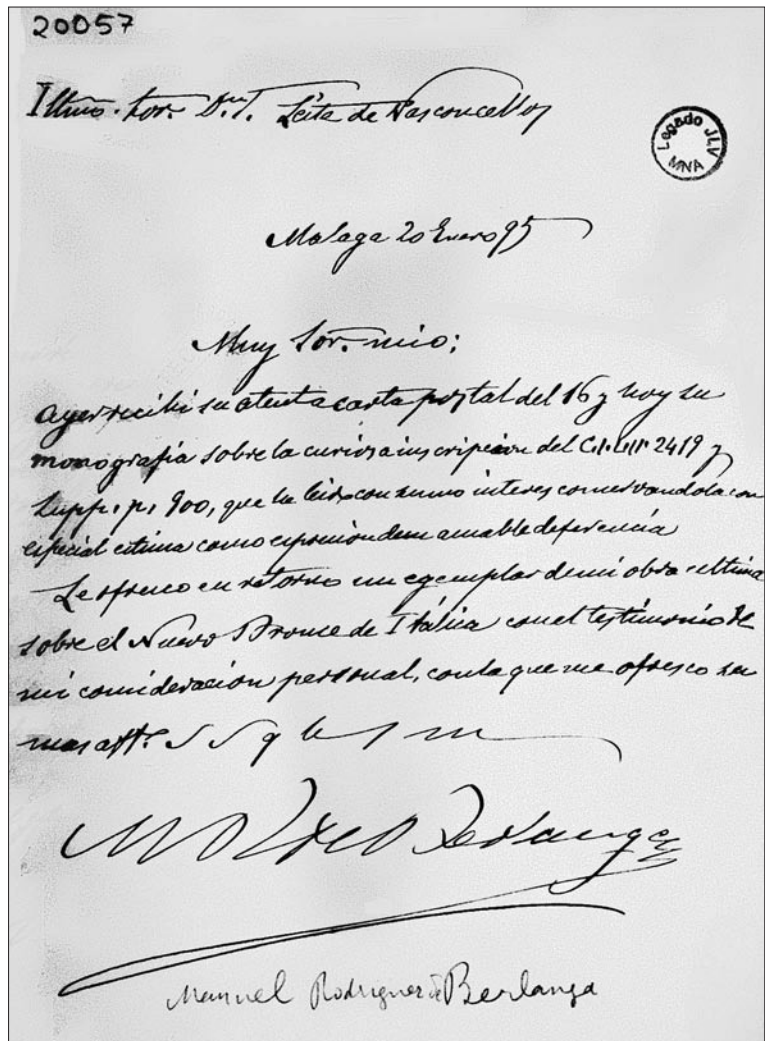 20057
Illmo. Sor. Dn. J. Leite de Vasconcellos
Legado JLV
MNA
Malaga 20 Enero 95
Muy Sor. mio:
Ayer recibi su atenta carta postal del 16 y hoy su
monografia sobre la curiosa inscripcion del C.I.L. II 2419 y
Supp. p. 900, que he leido con sumo interes conservandola con
especial estima como expresion de su amable deferencia
Le ofrezco en retorno un egemplar de mi obra ultima
sobre el Nuevo Bronce de Itálica con el testimonio de
mi consideracion personal, con la que me ofresco su
mas att. S S q b s m
M R de Berlanga
Manuel Rodriguez de Berlanga